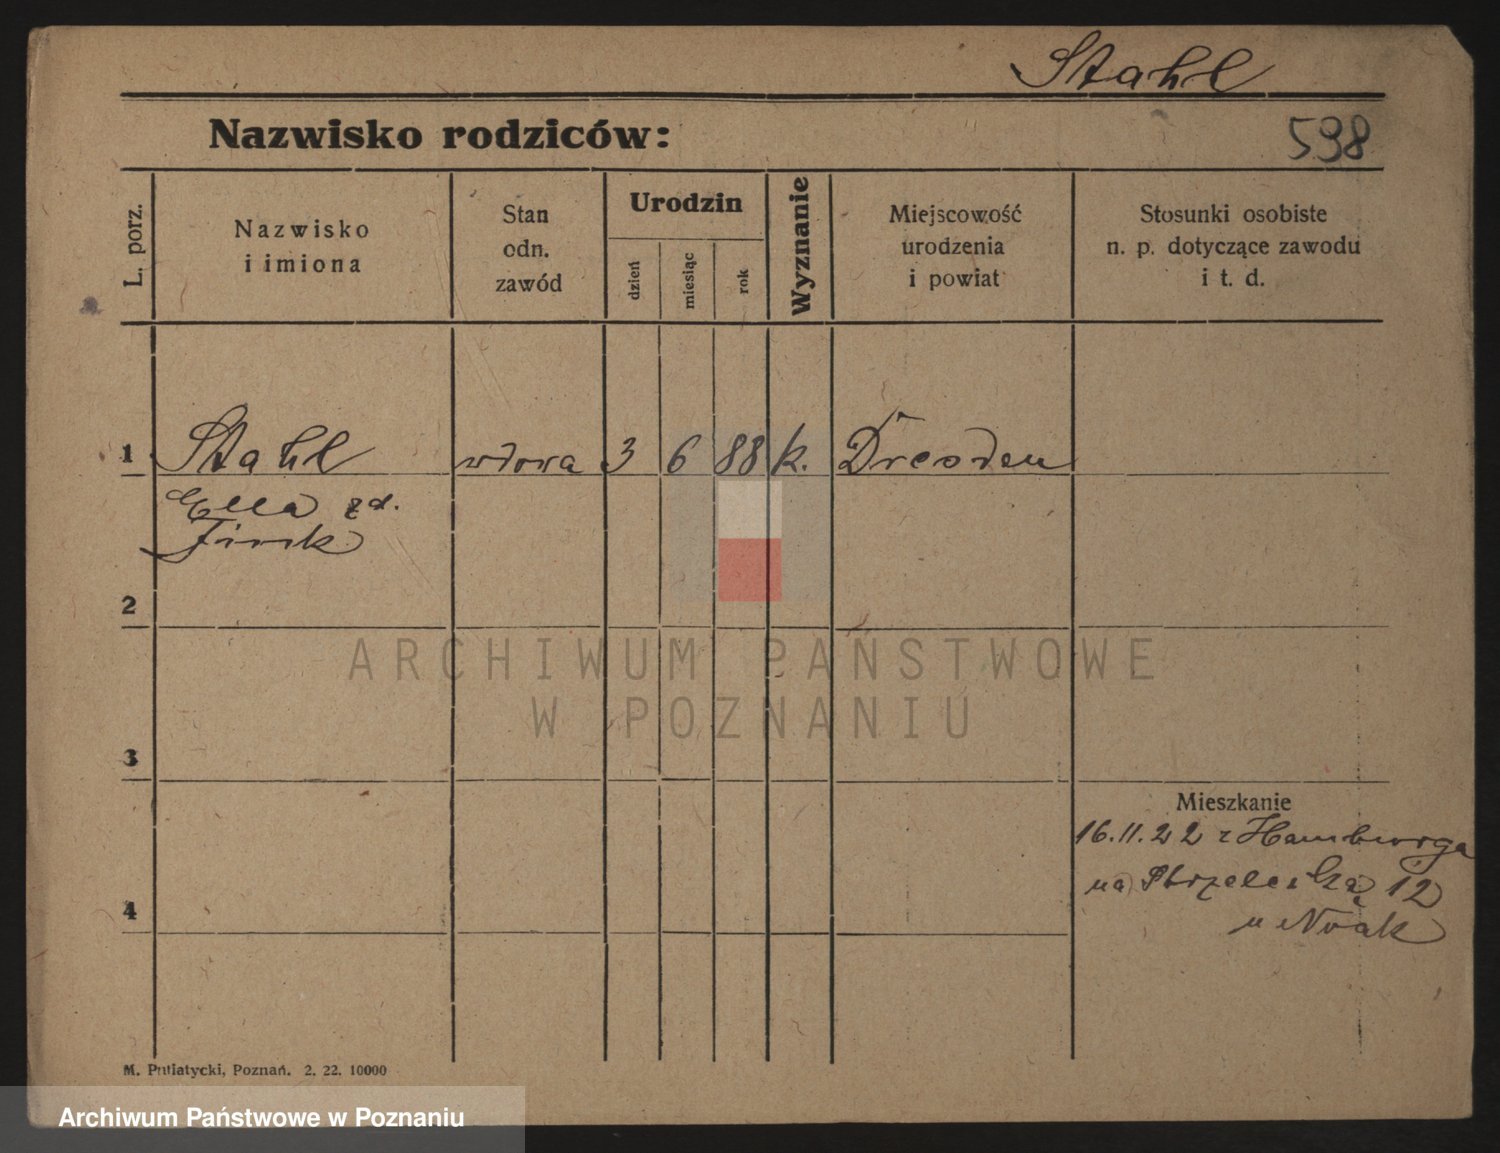 Stahl
Nazwisko rodziców:
598
L. porz.
Nazwisko
i imiona
Stan
odn.
zawód
Urodzin
dzień
miesiąc
rok
Wyznanie
Miejscowość
urodzenia
i powiat
Stosunki osobiste
n. p. dotyczące zawodu
i t. d.
1 Stahl wdowa 3 6 88 k. Dresden
Ella zd.
2
3
Mieszkanie
16.11.22 z Hamburga
na Strzelecką 12
4
u Noak
M. Putiatycki, Poznań. 2. 22. 10000
ARCHIWUM PAŃSTWOWE
W POZNANIU
Archiwum Państwowe w Poznaniu